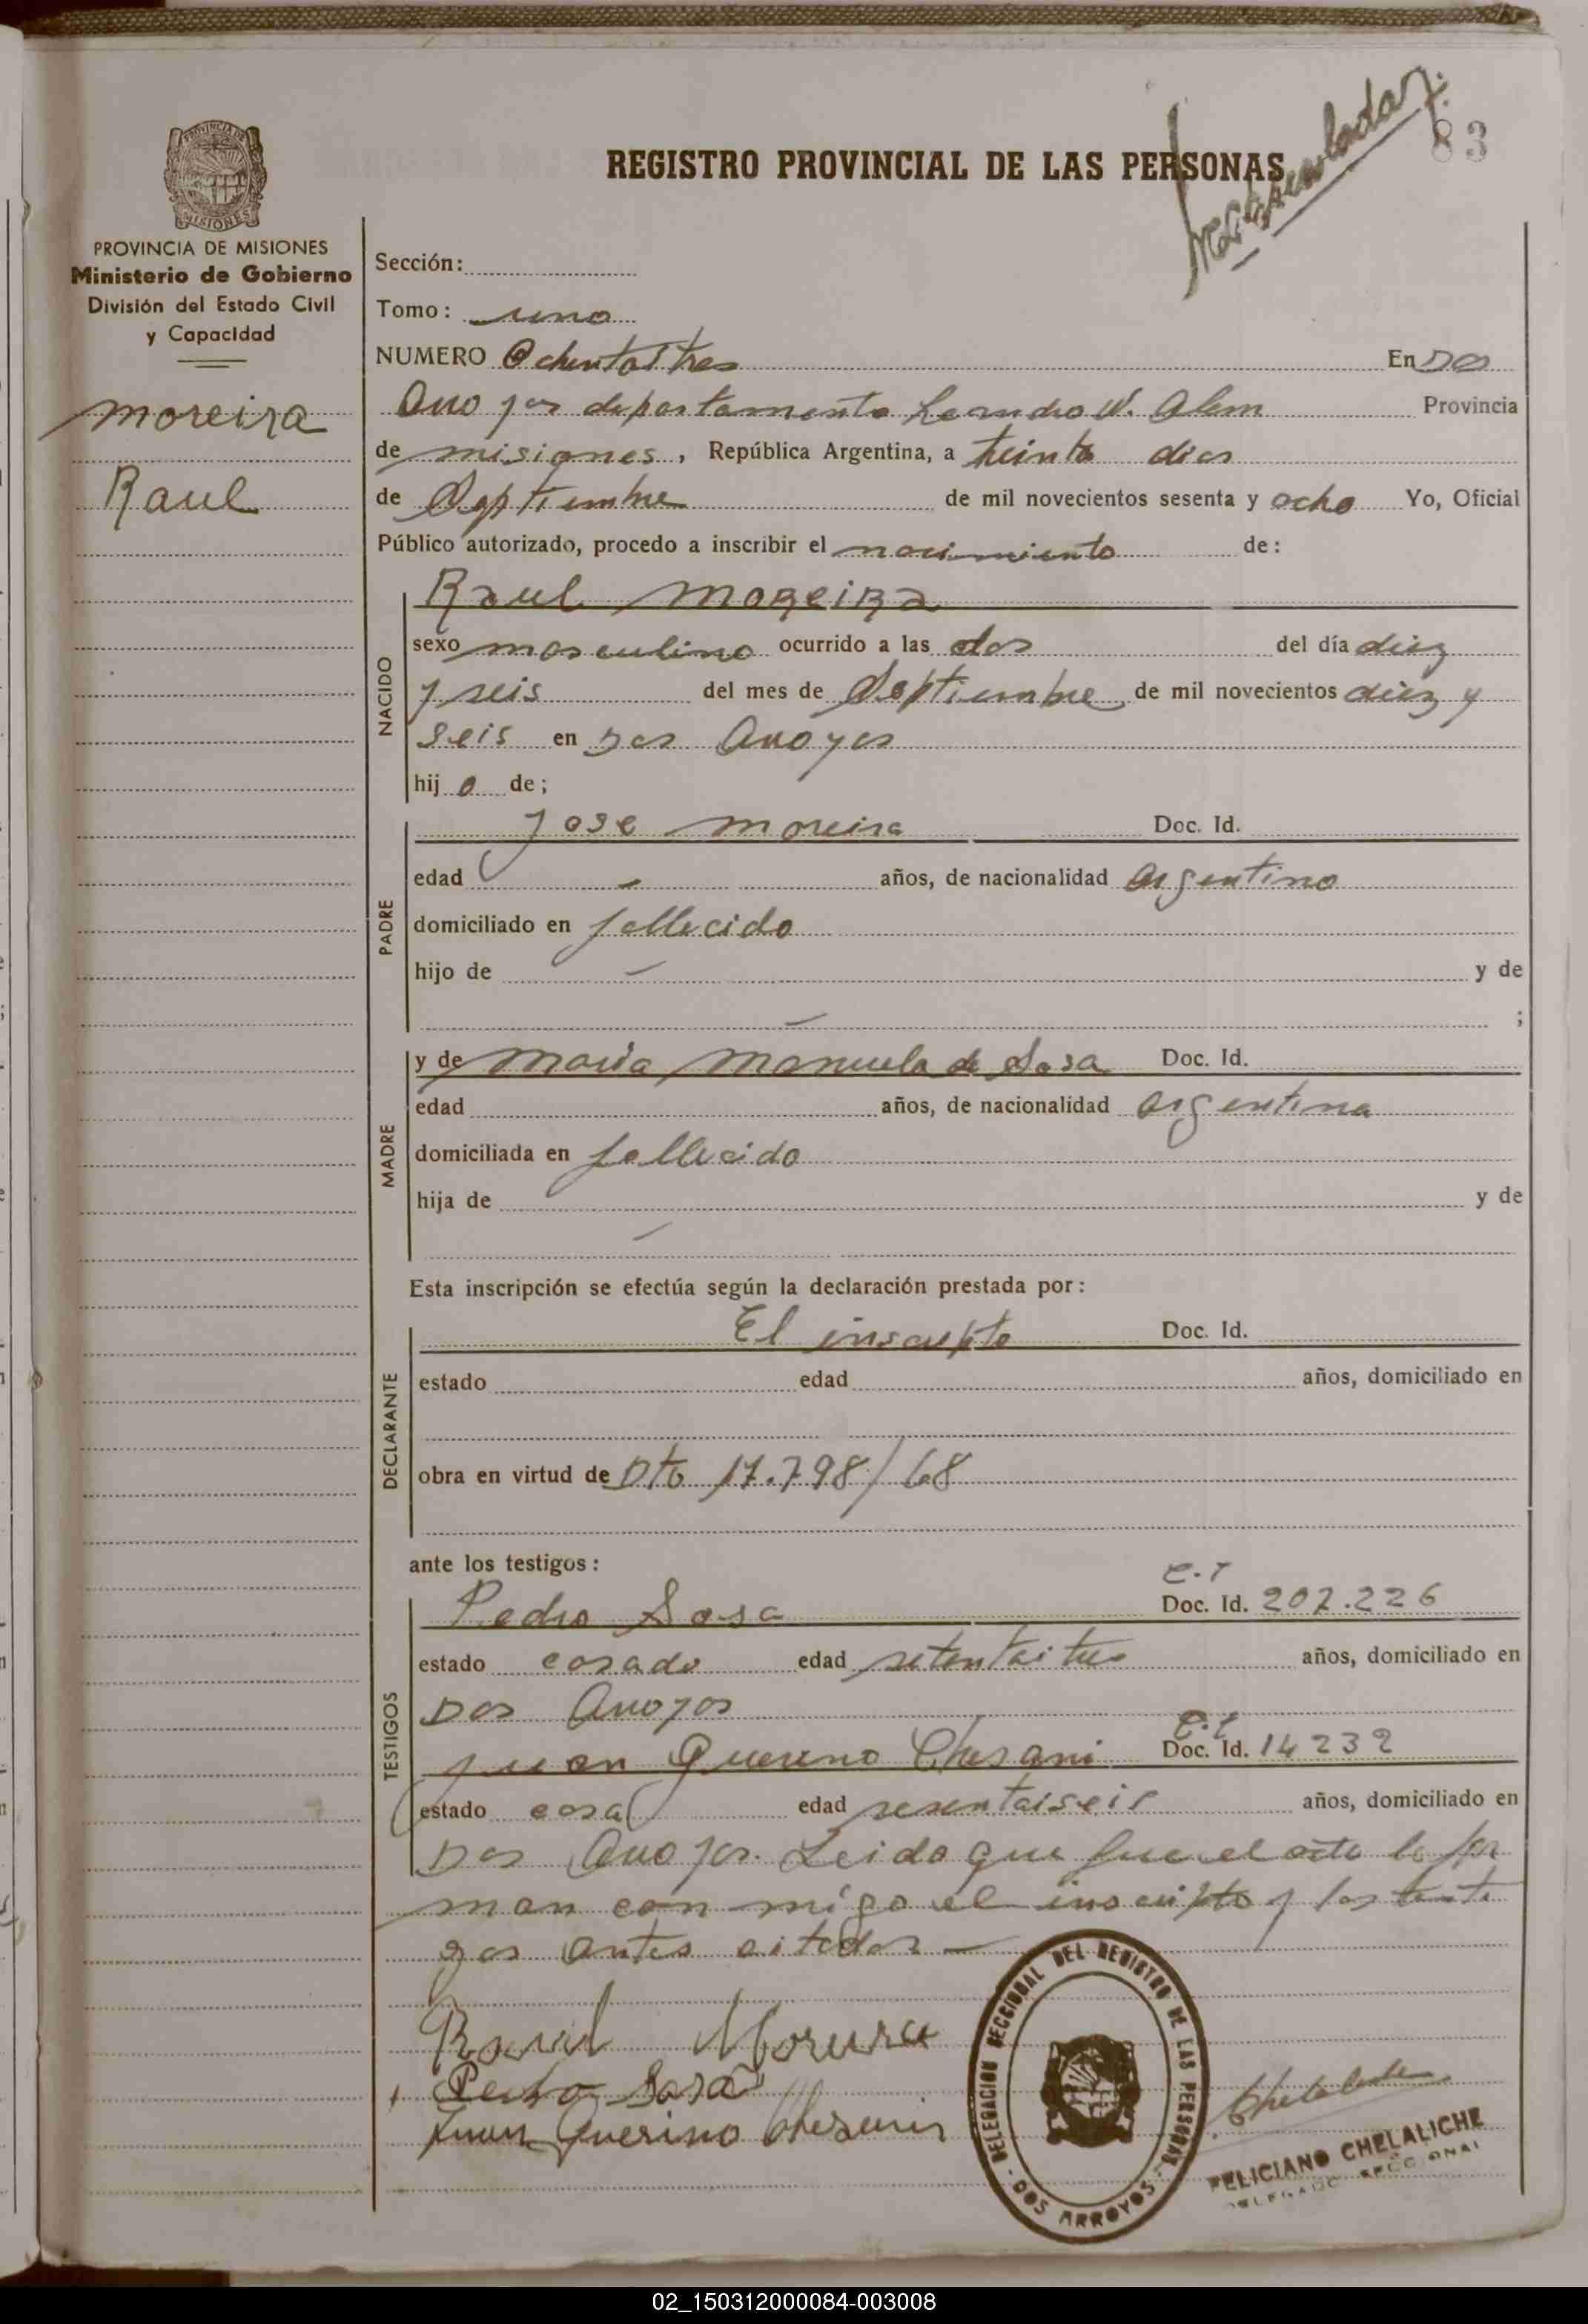 83
REGISTRO PROVINCIAL DE LAS PERSONAS
PROVINCIA DE MISIONES
MISIONES
PROVINCIA DE MISIONES
Ministerio de Gobierno
División del Estado Civil
y Capacidad
moreira
Raul
Sección:
Tomo: uno
NUMERO Ochentaitres En Dos
Arroyos departamento Leandro N. Alem Provincia
de misiones, República Argentina, a treinta dias
de Septiembre de mil novecientos sesenta y ocho Yo, Oficial
Público autorizado, procedo a inscribir el nacimiento de:
Raul Moreira
NACIDO
sexo masculino ocurrido a las dos del día diez
y seis del mes de Septiembre de mil novecientos diez y
seis en Dos Arroyos
hijo de;
PADRE
Jose Moreira Doc. Id.
edad - años, de nacionalidad argentino
domiciliado en fallecido
hijo de - y de
- ;
MADRE
y de Maria Manuela de Sosa Doc. Id.
edad años, de nacionalidad argentina
domiciliada en fallecido
hija de y de
-
Esta inscripción se efectúa según la declaración prestada por:
DECLARANTE
El inscripto Doc. Id.
estado edad años, domiciliado en
obra en virtud de Dto 17.798/68
ante los testigos:
TESTIGOS
C.I
Pedro Sosa Doc. Id. 207.226
estado casado edad setentaitres años, domiciliado en
Dos Arroyos
C.I
Juan Querino Chesani Doc. Id. 14232
estado casad edad sesentaiseis años, domiciliado en
Dos Arroyos. Leida que fue el acta la fir
man con migo el inscripto y los testi
gos antes citados -
Raul Moreira
Pedro Sosa
Juan Querino
DELEGACION SECCIONAL DEL REGISTRO DE LAS PERSONAS - DOS ARROYOS -
FELICIANO CHELALICHE
DELEGADO SECCIONAL
02_150312000084-003008